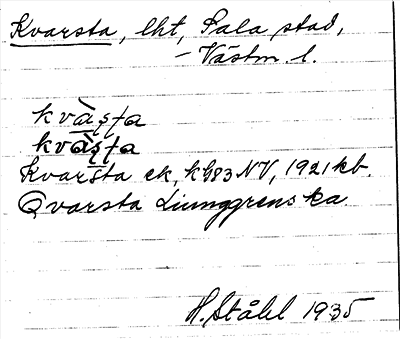 Kvarsta, lht, Sala stad,
– Västm. l.
kvàʂʈa
kvàʂʈa
Kvarsta ek, kb 83 NV, 1921 kb.
Qvarsta Ljunggrenska
H. Ståhl 1935